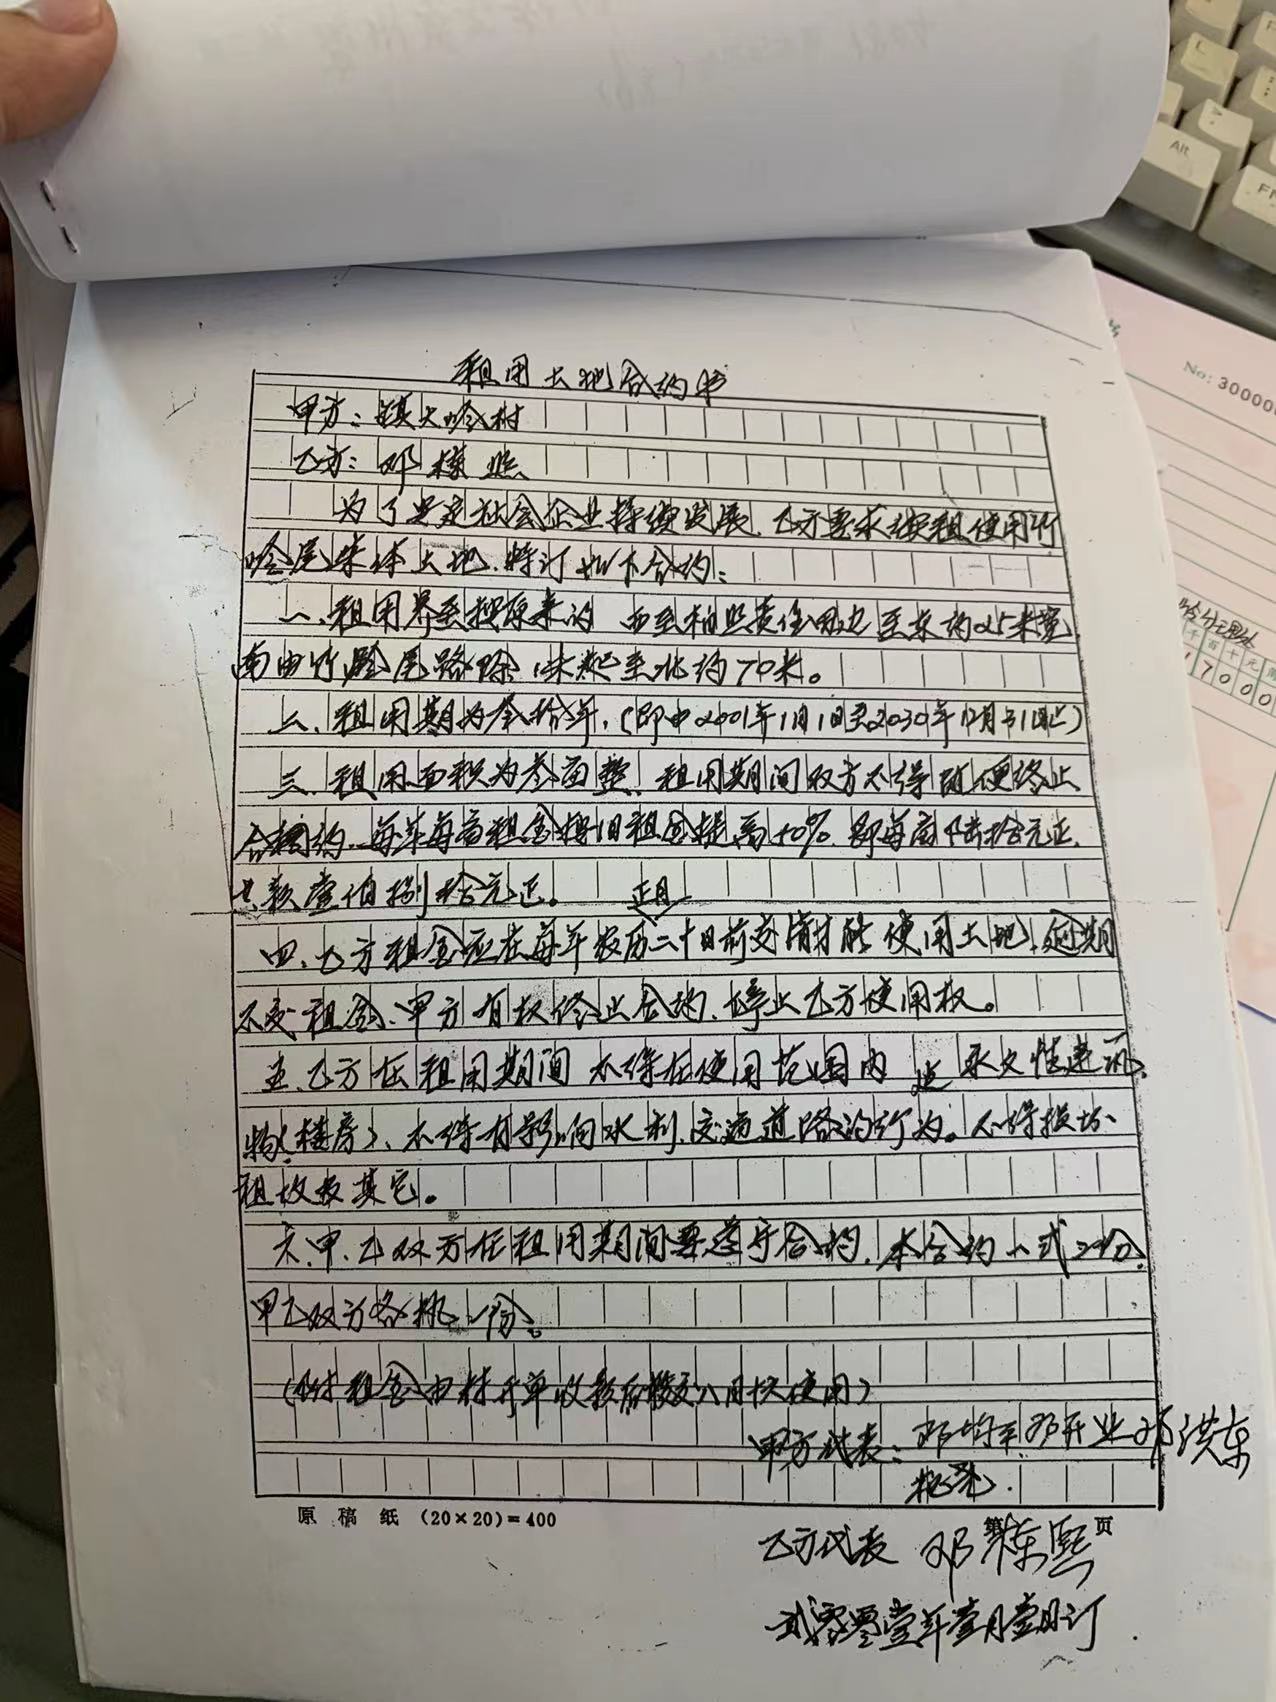 租用土地合约书
甲方：镇大岭村
乙方：邓栋熙
为了 社会企业持续发展，乙方要求续租使用竹
岭尾集体土地，特订如下合约：
一、租用界至按原来的 西至柏照责任田边至东约25米宽，
南由竹岭尾路除 米起至北约70米。
二、租用期为叁拾年，（即由2001年1月1日至2030年12月31日止）
三、租用面积为叁亩整，租用期间双方不得随便终止
合约，每年每亩租金按旧租金提高 10%，即每亩陆拾元正，
共款壹佰捌拾元正。 正月
四、乙方租金应在每年农历二十日前交清才能使用土地，延期
不交租金，甲方有权终止合约，停止乙方使用权。
五、乙方在租用期间不得在使用范围内 建 永久性建筑
物（楼房），不得有影响水利、交通道路的行为。不得损坏
及其它。
六、甲、乙双方在租用期间要遵守合约，本合约一式二份，
甲乙双方各执一份。
（附租金由村开单收款后 使用）
甲方代表： 邓开业 邓洪东
乙方代表 邓栋熙
贰零零壹年壹月壹日订
原 稿 纸 (20×20)=400
第 页
Alt
No: 30000
千 百 十 元
1 7 0 0 0